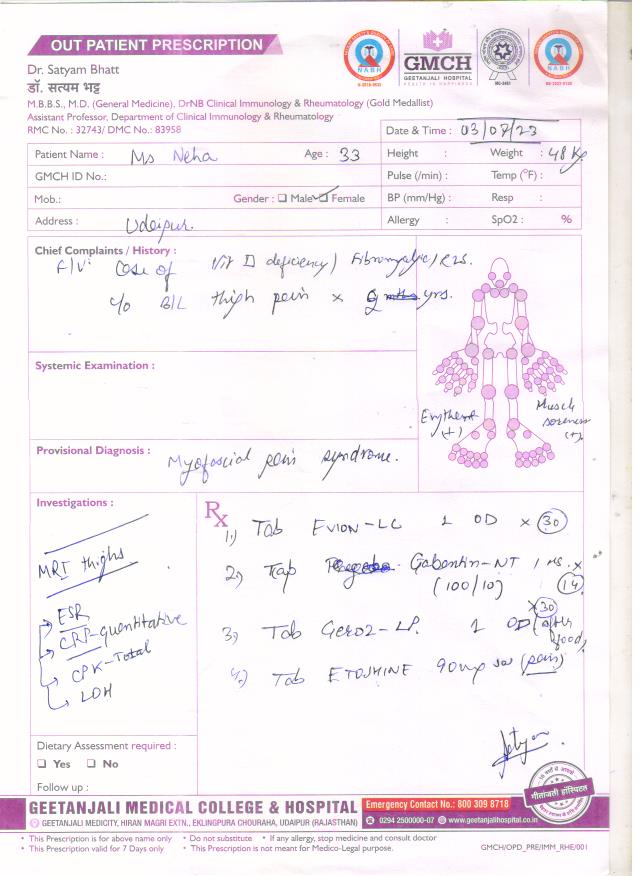 OUT PATIENT PRESCRIPTION
NABH
GMCH
GEETANJALI HOSPITAL
NABH
Dr. Satyam Bhatt
डॉ. सत्यम भट्ट
M.B.B.S., M.D. (General Medicine), DrNB Clinical Immunology & Rheumatology (Gold Medallist)
Assistant Professor, Department of Clinical Immunology & Rheumatology
RMC No. : 32743/ DMC No.: 83958
Date & Time : 03/07/23
Patient Name : Ms Neha Age : 33
Height : Weight : 48 Kg
GMCH ID No.:
Pulse (/min) : Temp (°F) :
Mob.: Gender : Male Female
BP (mm/Hg) : Resp :
Address : Udaipur.
Allergy : SpO2 : %
Chief Complaints / History :
F/V: Case of Vit D deficiency / Fibromyalgia /
c/o B/L thigh pain x yrs.
Systemic Examination :
Erythema (+)
Muscle soreness (+)
Provisional Diagnosis :
Myofascial pain syndrome.
Investigations :
MRI thighs
ESR
CRP-quantitative
CPK-Total
LDH
Rx
1) Tab EVION-LC 1 OD x 30
2) Tap Gabentin-NT 1 HS x 14
(100/10)
3) Tab Gero2-LP. 1 OD x 30 (after food)
4) Tab ETOSHINE 90mg SOS (pain)
Dietary Assessment required :
Yes No
Follow up :
गीतांजली हॉस्पिटल
GEETANJALI MEDICAL COLLEGE & HOSPITAL
Emergency Contact No.: 800 309 8718
GEETANJALI MEDICITY, HIRAN MAGRI EXTN., EKLINGPURA CHOURAHA, UDAIPUR (RAJASTHAN)
0294 2500000-07 www.geetanjalihospital.co.in
• This Prescription is for above name only • Do not substitute • If any allergy, stop medicine and consult doctor
• This Prescription valid for 7 Days only • This Prescription is not meant for Medico-Legal purpose.
GMCH/OPD_PRE/IMM_RHE/001